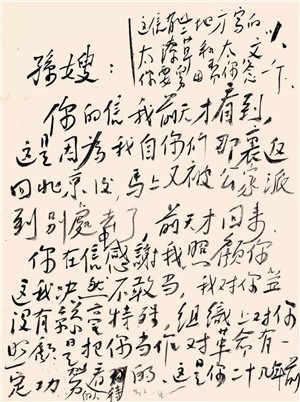 这信
地方写的
太潦草和
太文
你要
一下
孫嫂：
你的信我前天才看到，
这是因為我自你们那裏返
回北京后，馬上又被公家派
到别處去了，前天才回来。
你在信感謝我照顧你
这我决然不敢当。我对你並
没有丝毫特殊，组織上对你
照顧是把你当作对革命有一
定功劳的看待的。这是你二十九年前